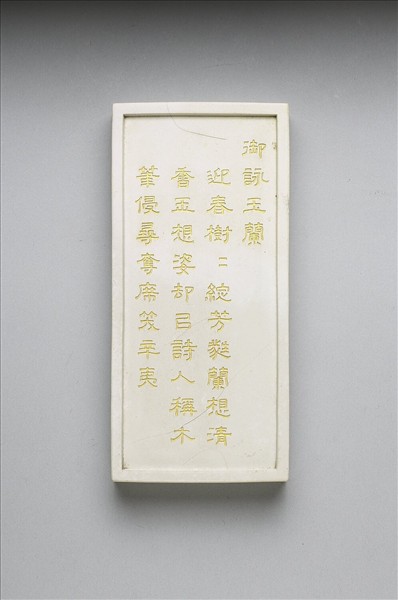 御詠玉蘭
迎春樹〻綻芳蕤蘭想清
香玉想姿却㠯詩人稱木
筆侵尋奪席笑辛夷